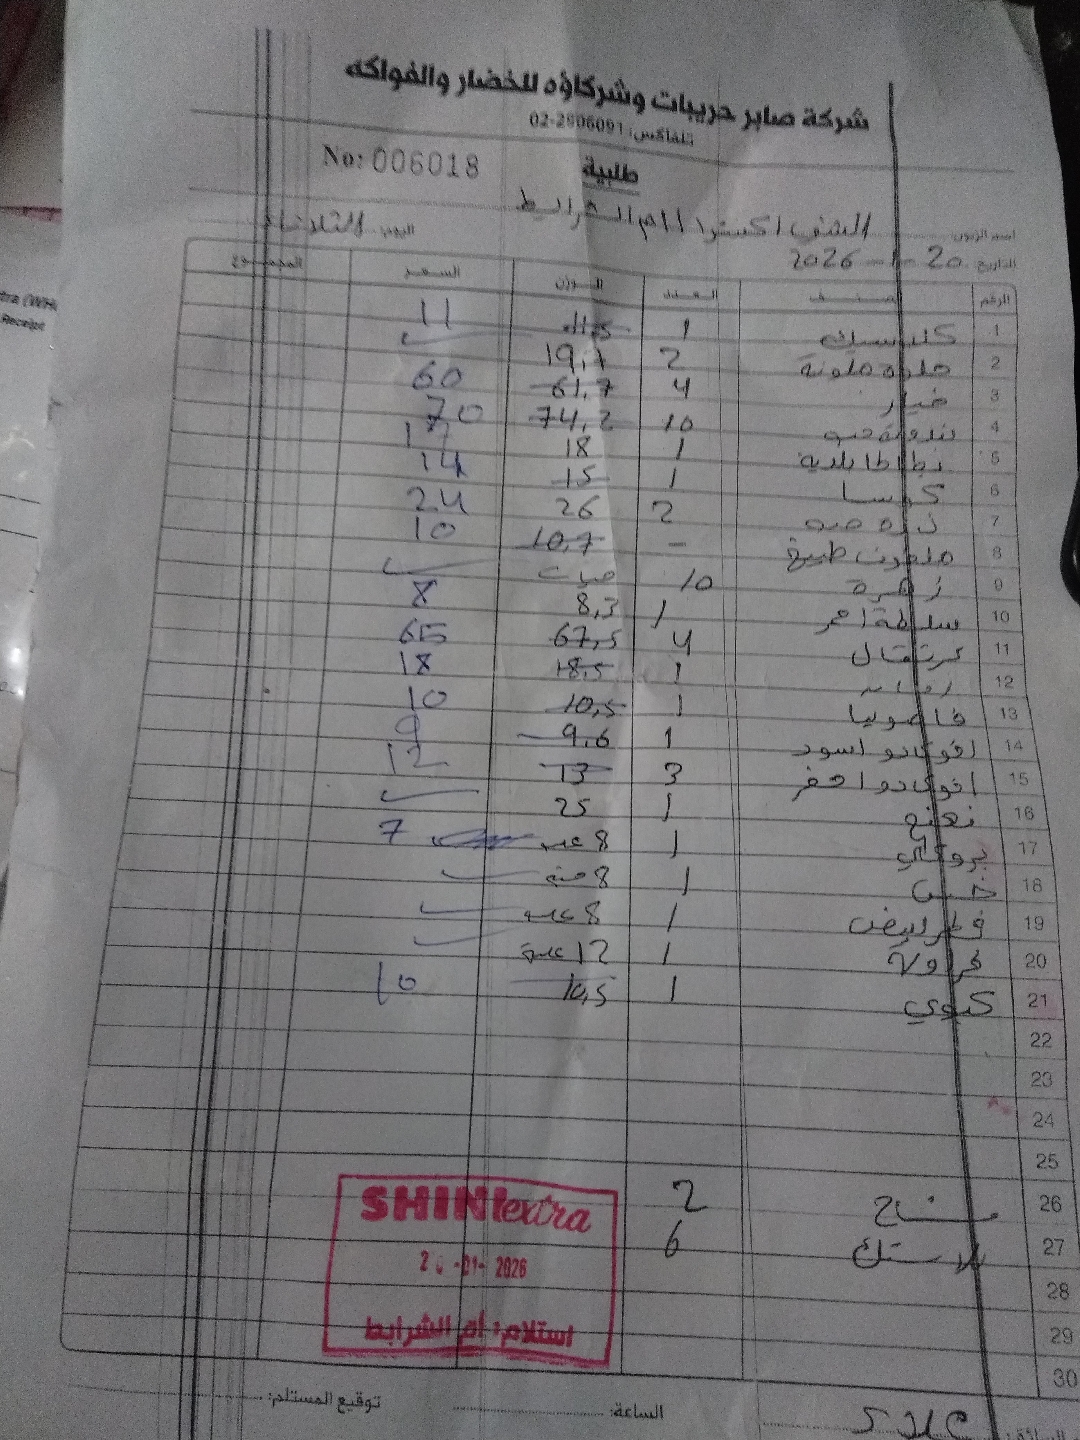 شركة صابر حريبات وشركاؤه للخضار والفواكه
تلفاكس: 02-2806091
No: 006018
طلبية
اسم الزبون: الشني اكسترا ام الشرايط اليوم: الثلاثاء
التاريخ 20-1-2026
الرقم الصنف العدد الوزن السعر المجموع
1 1 11,5 11
2 حلوة ملونة 2 19,1
3 خيار 4 61,7 60
4 بندورة حبه 10 74,2 70
5 بطاطا بلديه 1 18 17
6 كوسا 1 15 14
7 ذره حبه 2 26 24
8 طبيخ - 10,7 10
9 زهرة 10 حبات
10 سلطة احمر 1 8,3 8
11 برتقال 4 67,5 65
12 1 18,5 18
13 فاصوليا 1 10,5 10
14 افوكادو اسود 1 9,6 9
15 افوكادو اخضر 3 13 12
16 نعنع 1 25
17 بروكلي 1 8 7
18 خس 1 8 حبه
19 فطر ابيض 1 8 علب
20 فراولة 1 12 علبة
21 كيوي 1 10,5 10
22
23
24
25
26 2
27 بلاستك 6
28
29
30
SHINI extra
-01-2026
استلام: أم الشرايط
الساعة: توقيع المستلم: